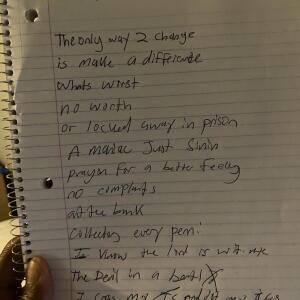 The only way 2 change
is make a differance
whats wrost
no worth
or locked away in prison
A maniac Just Sinin
prayon for a better feeling
no complaints
at the bank
collecting every peni
I know the lord is with me
the Devil in a battl
I